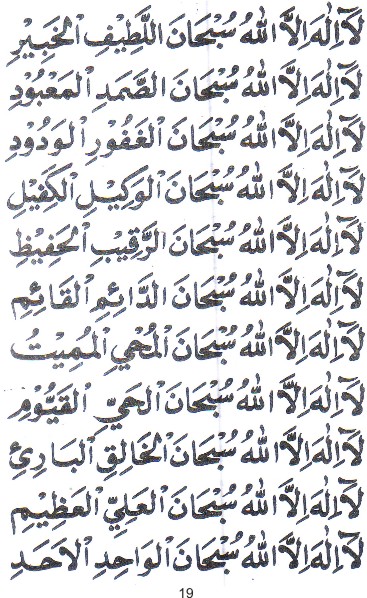 لَآ اِلٰهَ اِلَّا اللهُ سُبْحَانَ اللَّطِيفِ الْخَبِيْرِ
لَآ اِلٰهَ اِلَّا اللهُ سُبْحَانَ الصَّمَدِ الْمَعْبُوْدِ
لَآ اِلٰهَ اِلَّا اللهُ سُبْحَانَ الْغَفُوْرِ الْوَدُوْدِ
لَآ اِلٰهَ اِلَّا اللهُ سُبْحَانَ الْوَكِيْلِ الْكَفِيْلِ
لَآ اِلٰهَ اِلَّا اللهُ سُبْحَانَ الرَّقِيْبِ الْحَفِيْظِ
لَآ اِلٰهَ اِلَّا اللهُ سُبْحَانَ الدَّائِمِ الْقَائِمِ
لَآ اِلٰهَ اِلَّا اللهُ سُبْحَانَ الْمُحْيِ الْمُمِيْتُ
لَآ اِلٰهَ اِلَّا اللهُ سُبْحَانَ الْحَيِّ الْقَيُّوْمِ
لَآ اِلٰهَ اِلَّا اللهُ سُبْحَانَ الْخَالِقِ الْبَادِئِ
لَآ اِلٰهَ اِلَّا اللهُ سُبْحَانَ الْعَلِيِّ الْعَظِيْمِ
لَآ اِلٰهَ اِلَّا اللهُ سُبْحَانَ الْوَاحِدِ الْاَحَدِ
19